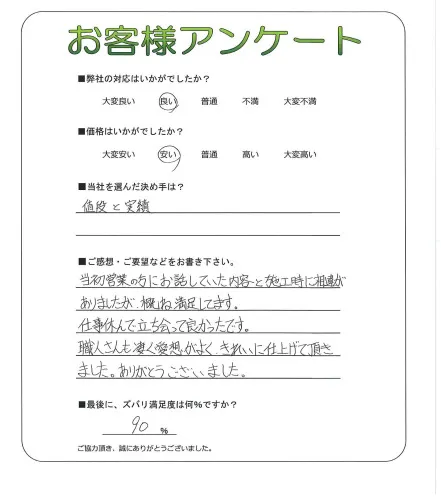 お客様アンケート
■弊社の対応はいかがでしたか?
大変良い 良い 普通 不満 大変不満
■価格はいかがでしたか?
大変安い 安い 普通 高い 大変高い
■当社を選んだ決め手は?
値段と実績
■ご感想・ご要望などをお書き下さい。
当初営業の方にお話していた内容と施工時に相違が
ありましたが、概ね満足してます。
仕事休んで立ち会って良かったです。
職人さんも凄く愛想がよく、きれいに仕上げて頂き
ました。ありがとうございました。
■最後に、ズバリ満足度は何%ですか?
90 %
ご協力頂き、誠にありがとうございました。